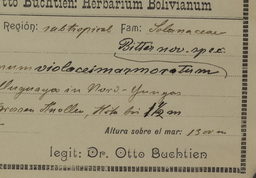 Otto Buchtien: Herbarium Bolivianum
Región: subtropical Fam: Solanaceae
Bitter nov. spec.
num violaceimarmoratum
in Nord-Yungas
grossen Knollen, Höhe bis 1½ m
Altura sobre el mar: 1300 m
legit: Dr. Otto Buchtien